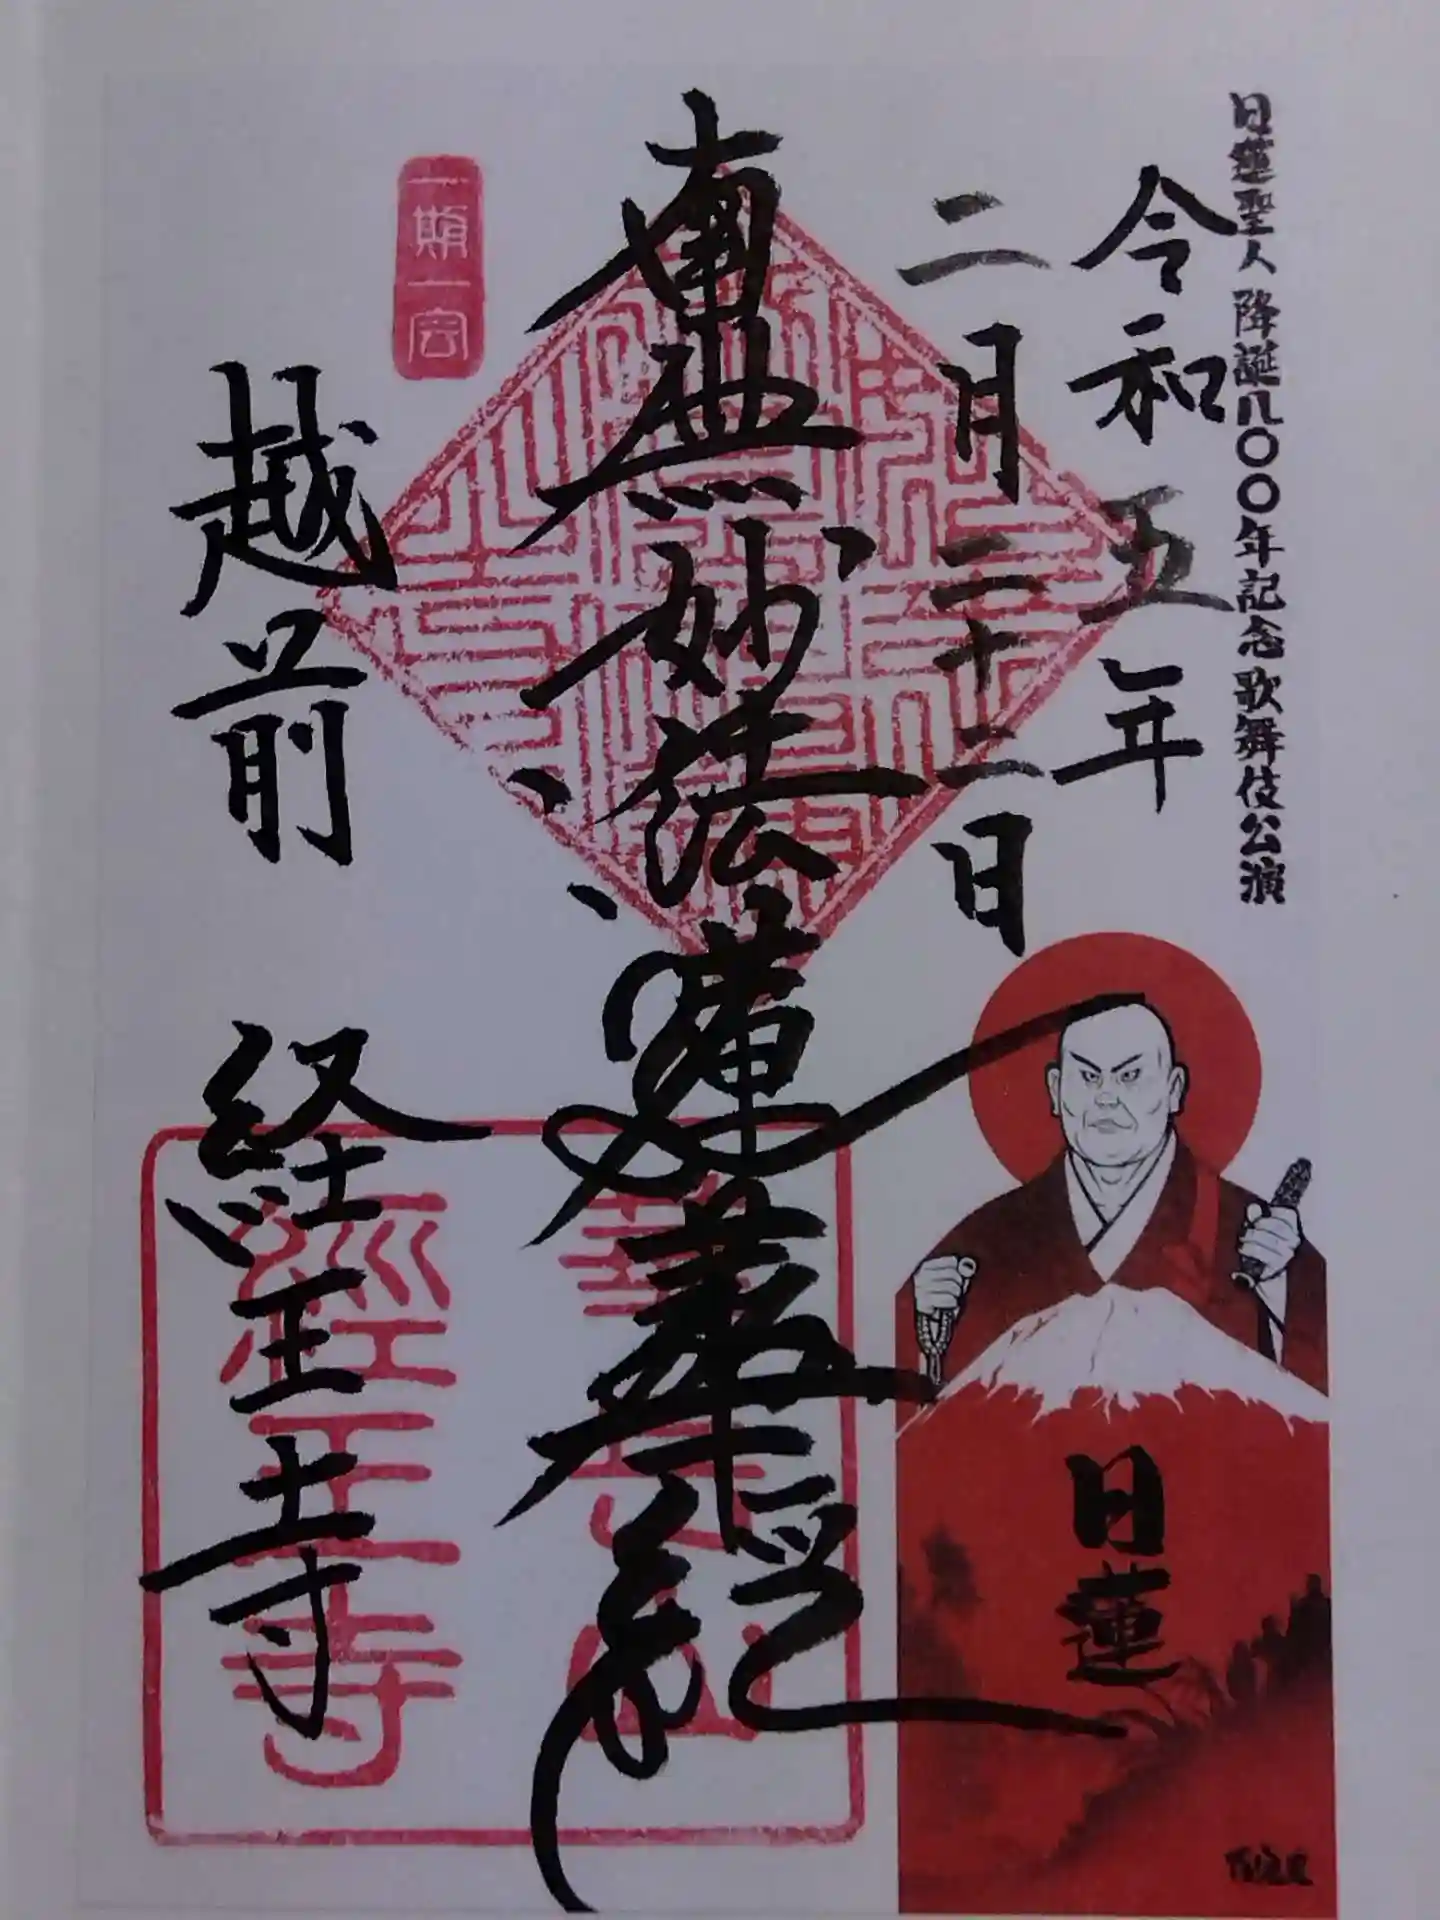 日蓮聖人降誕八〇〇年記念歌舞伎公演
令和五年
二月二十二日
南無妙法蓮華経
一期一会
越前 経王寺
經王寺
日蓮